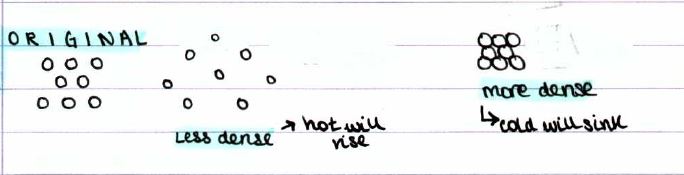 ORIGINAL
Less dense → hot will
rise
more dense
↳ cold will sink